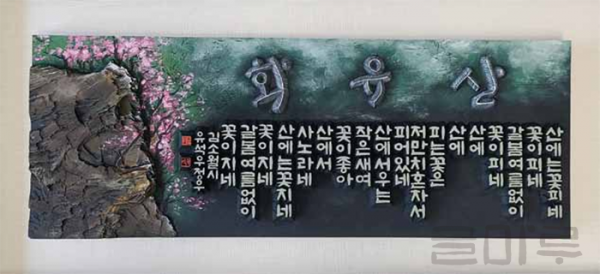 산유화
산에는꽃피네
꽃이피네
갈봄여름없이
꽃이피네
산에
산에
피는꽃은
저만치혼자서
피어있네
산에서우는
작은새여
꽃이좋아
산에서
사노라네
산에는꽃지네
꽃이지네
갈봄여름없이
꽃이지네
김소월시
글마루